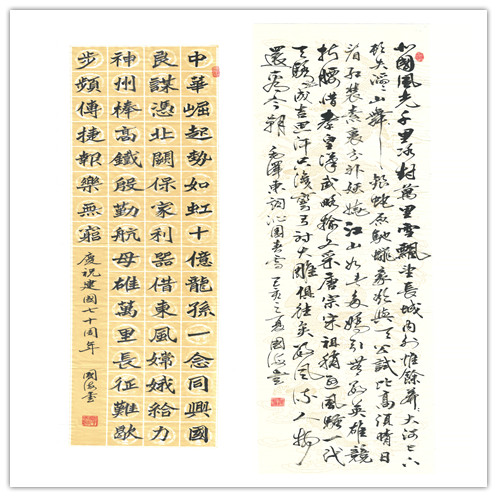 中華崛起勢如虹十億龍孫一念同興國
良謀憑北闕保家利器借東風嫦娥給力
神州棒高鐵殷勤航母雄萬里長征難歇
步頻傳捷報樂無窮 慶祝建國七十周年 國海書
北國風光千里冰封萬里雪飄望長城内外惟餘莽大河上下
頓失滔山舞銀蛇原馳蠟象欲與天公試比高須晴日
看紅裝素裹分外妖嬈江山如此多嬌引無數英雄競
折腰惜秦皇漢武略輸文采唐宗宋祖稍遜風騷一代
天驕成吉思汗只識彎弓射大雕俱往矣數風流人物
還看今朝 毛澤東詞沁園春雪 己亥之夏國海書